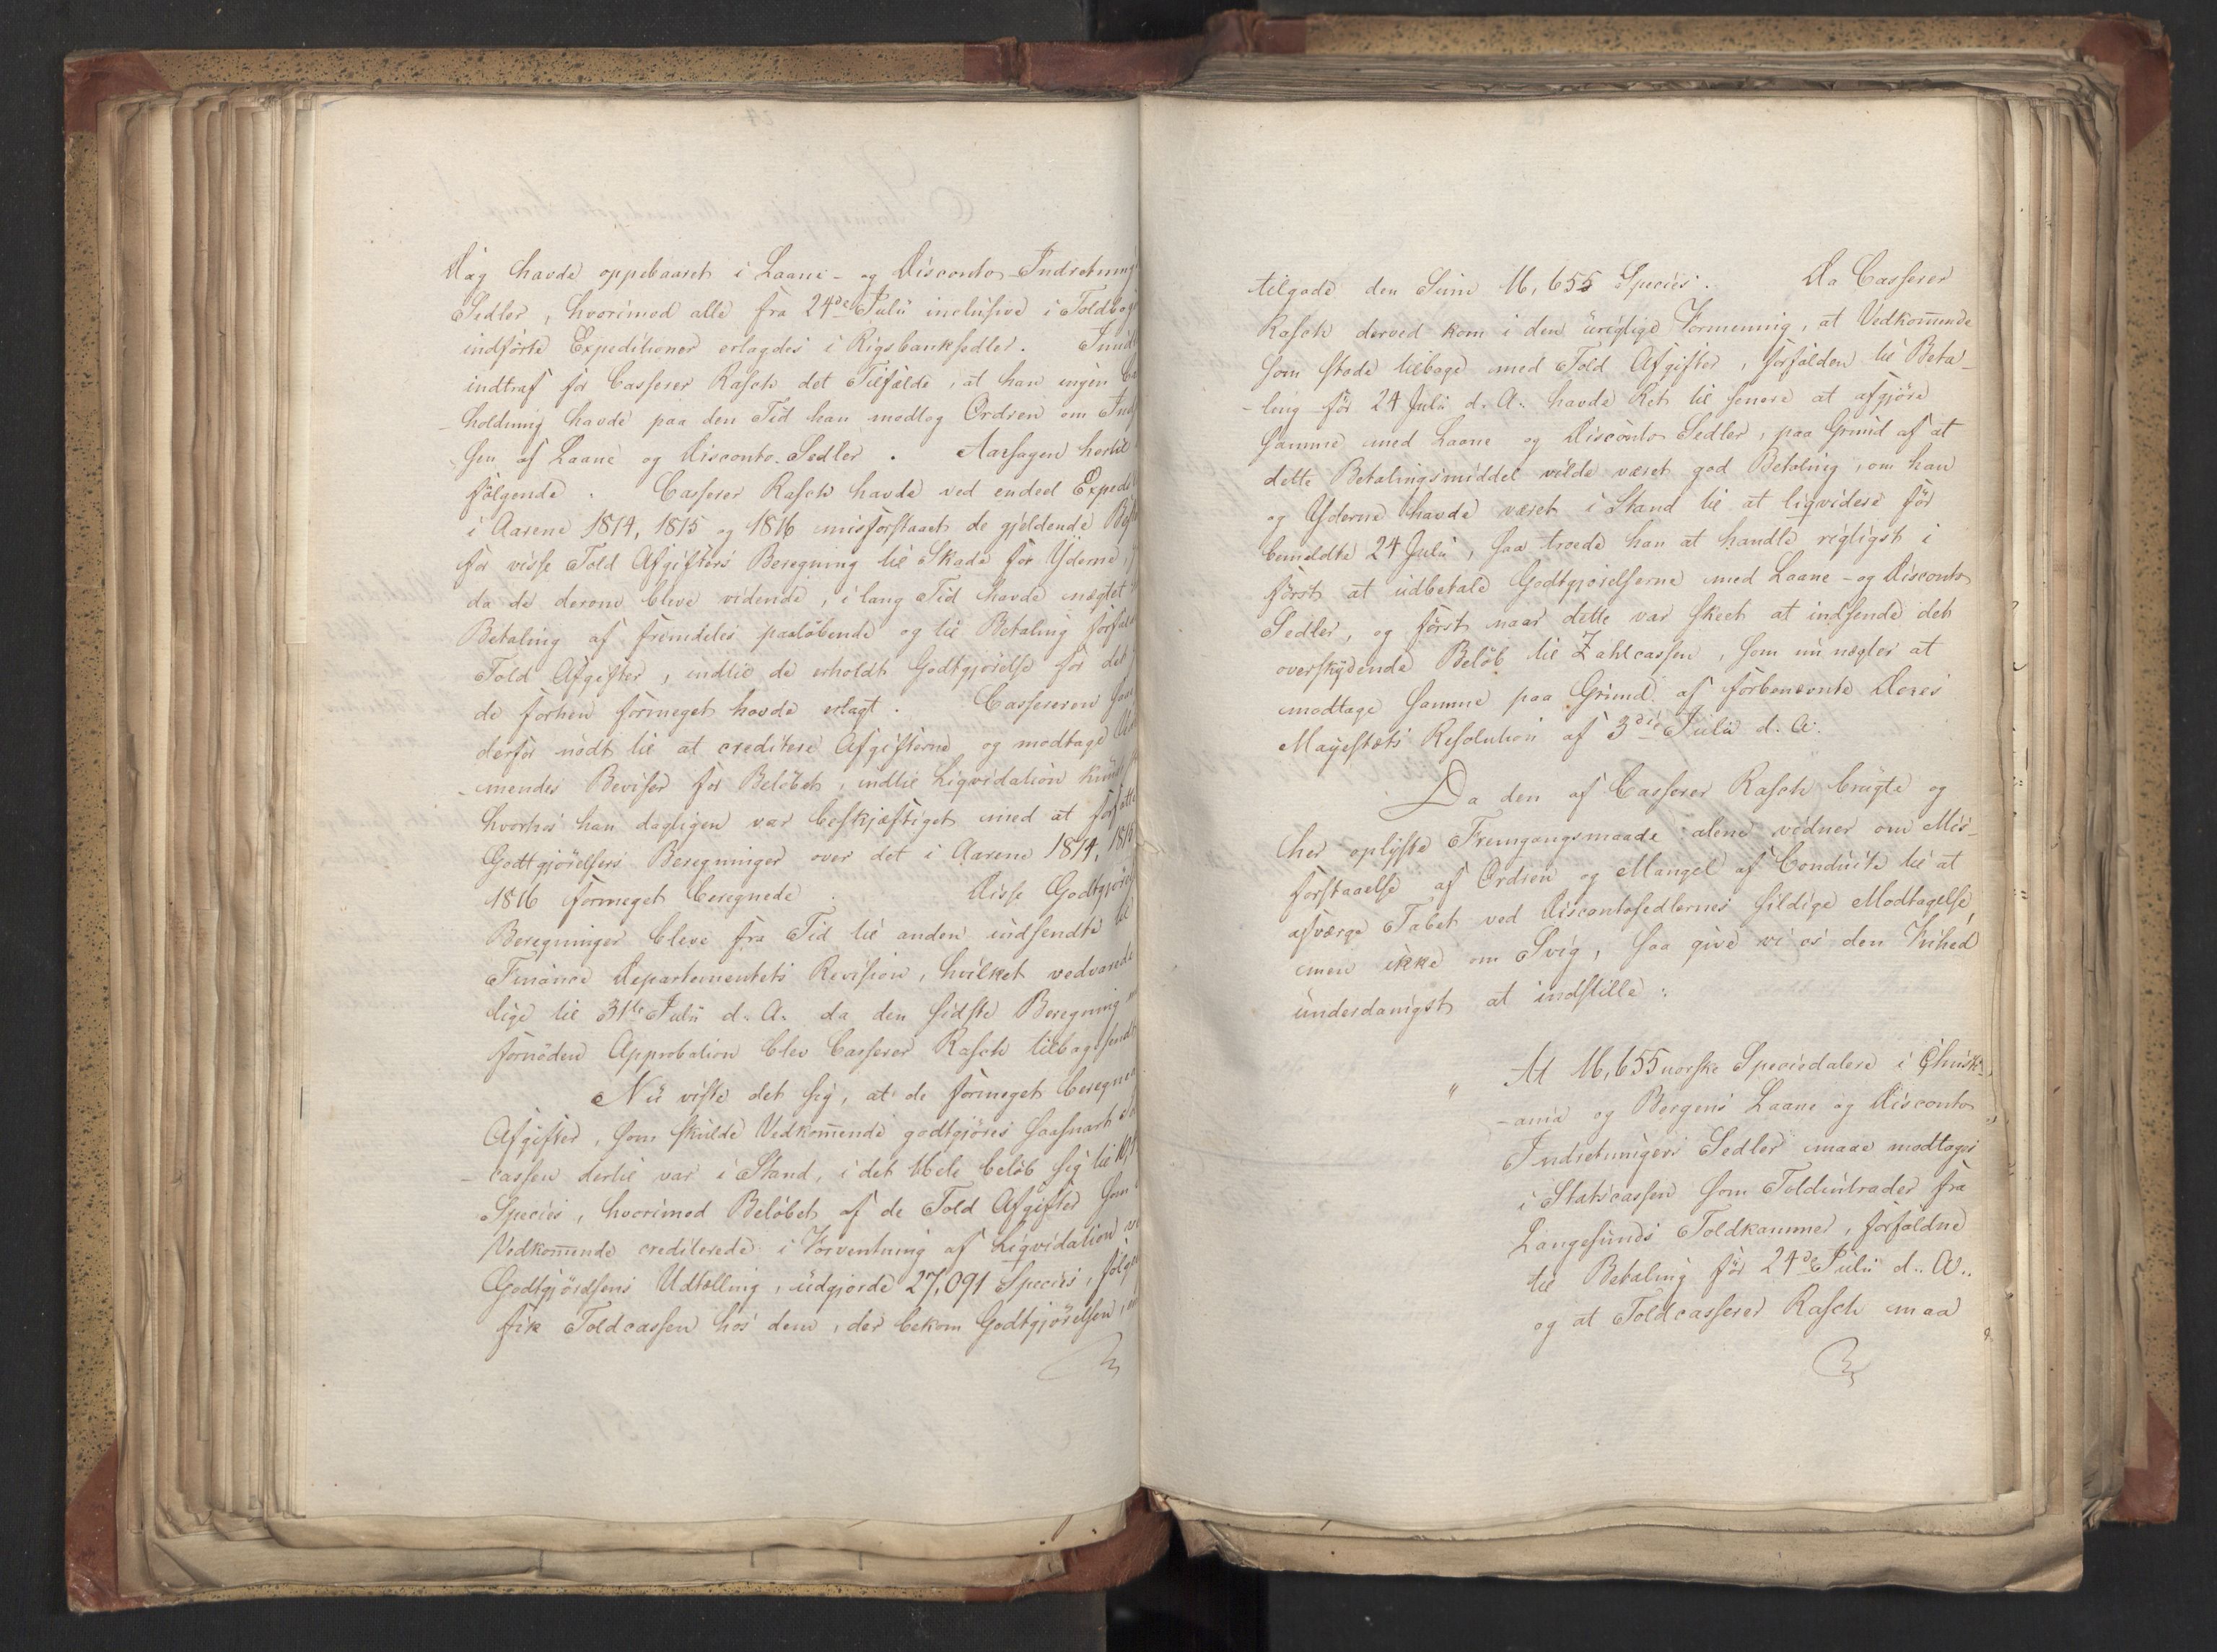 Dag havde oppebaaret i Laane- og Disconto-Indretning
Sedler, hvorimod alle fra 24de Julii inclusive i Toldbog
indførte Expeditioner erlagdes i Rigsbanksedler.
indtraf for Casserer Rasch det Tilfælde, at han ingen
-holdning havde paa den Tid han modtog Ordren om
sen af Laane og Disconto-Sedler. Aarsagen hertil
følgende. Casserer Rasch havde ved endeel
i Aarene 1814, 1815 og 1816 misforstaaet de gjeldende
for visse Told Afgifters Beregning til Skade for Yderne,
da de derom bleve vidende, i lang Tid havde nægtet
Betaling af fremdeles paaløbende og til Betaling
Told Afgifter, indtil de erholdt Godtgjørelse for det
de forhen formeget havde erlagt. Cassereren
derfor nødt til at creditere Afgifterne og modtage
-mendes Beviser for Beløbet, indtil Liqvidation
hvorhos han dagligen var beskjæftiget med at forfatte
Godtgjørelsers Beregninger over det i Aarene 1814, 1815
1816 formeget beregnede. Disse
Beregninger bleve fra Tid til anden indsendte til
Finance Departementets Revision, hvilket vedvarede
lige til 31te Julii d. A. da den sidste Beregning
fornøden Approbation blev Casserer Rasch tilbagesendt
Nu viste det sig, at de formeget
Afgifter, som skulde Vedkommende godtgjøres saasnart
-cassen dertil var i Stand, i det Hele beløb sig til
Species, hvorimod Beløbet af de Told Afgifter som
Vedkommende crediterede i Forventning af Liqvidation
Godtgjørelsens Udtælling, udgjorde 27,091 Species,
fik Toldcassen hos dem, der bekom Godtgjørelsen,
tilgode den Sum 16,655 Species. Da Casserer
Rasch derved kom i den urigtige Formening, at Vedkommende
som stode tilbage med Told Afgifter, forfalden til Beta-
-ling før 24 Julii d. A. havde Ret til senere at afgjøre
samme med Laane og Disconto Sedler, paa Grund af at
dette Betalingsmiddel vilde været god Betaling, om han
og Yderne havde været i Stand til at liqvidere før
bemeldte 24 Julii, saa troede han at handle rigtigst i
først at udbetale Godtgjørelserne med Laane- og Disconto
Sedler, og først naar dette var skeet at indsende det
overskydende Beløb til Zahlcassen, som nu nægter at
modtage samme paa Grund af forbenævnte Deres
Mayestæts Resolution af 3die Julii d. A.
Da den af Casserer Rasch brugte og
her oplyste Fremgangsmaade alene vidner om Mis-
forstaaelse af Ordren og Mangel af Conduite til at
afværge Tabet ved Discontosedlernes sildige Modtagelse,
men ikke om Svig, saa give vi os den Frihed
underdanigst at indstille:
" At 16,655 norske Speciedalere i Christi-
-ania og Bergens Laane og Disconto
Indretningers Sedler maae modtages
i Statscassen som Toldintrader fra
Langesunds Toldkammer, forfaldne
til Betaling før 24de Julii d. A.
og at Toldcasserer Rasch maa